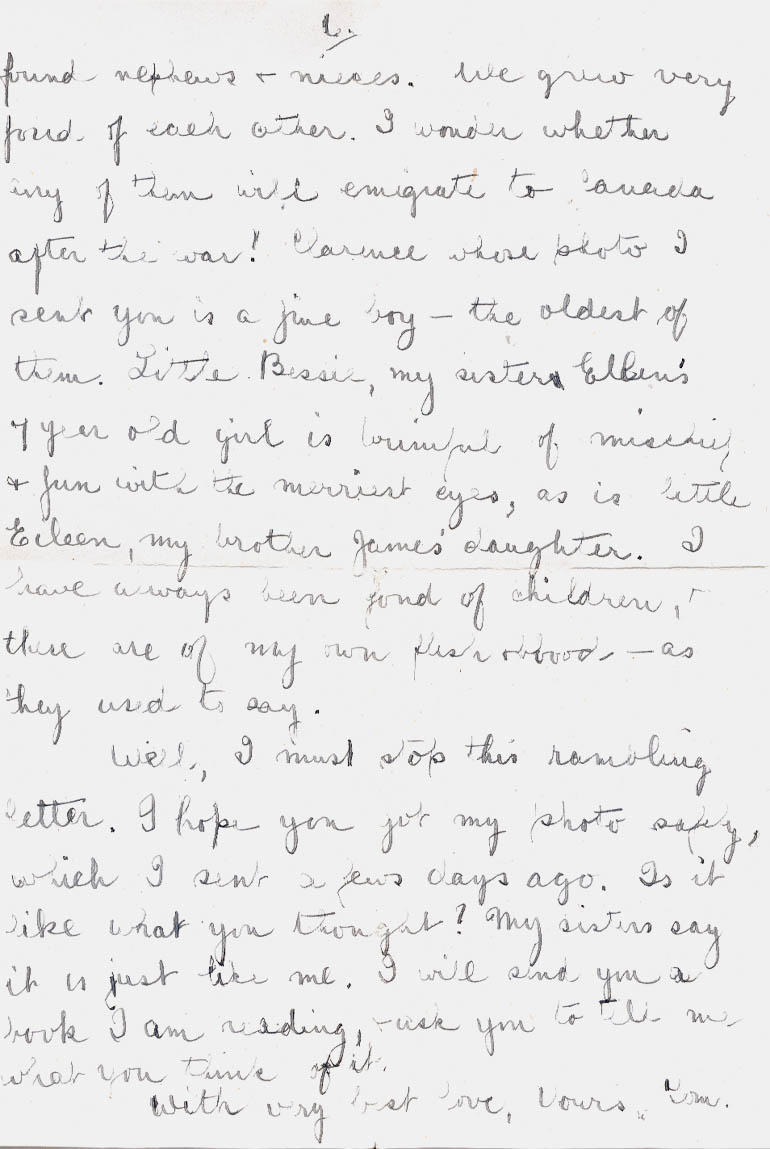 6.
found nephews + nieces. We grew very
fond of each other. I wonder whether
any of them will emigrate to Canada
after the war! Clarence whose photo I
sent you is a fine boy – the oldest of
them. Little Bessie, my sister Ellen's
7 year old girl is brimful of mischief
+ fun with the merriest eyes, as is little
Eileen, my brother James' daughter. I
have always been fond of children, +
these are of my own flesh + blood – as
they used to say.
Well, I must stop this rambling
letter. I hope you got my photo safely,
which I sent a few days ago. Is it
like what you thought? My sisters say
it is just like me. I will send you a
book I am reading, + ask you to tell me
what you think of it.
With very best love, Yours, Tom.